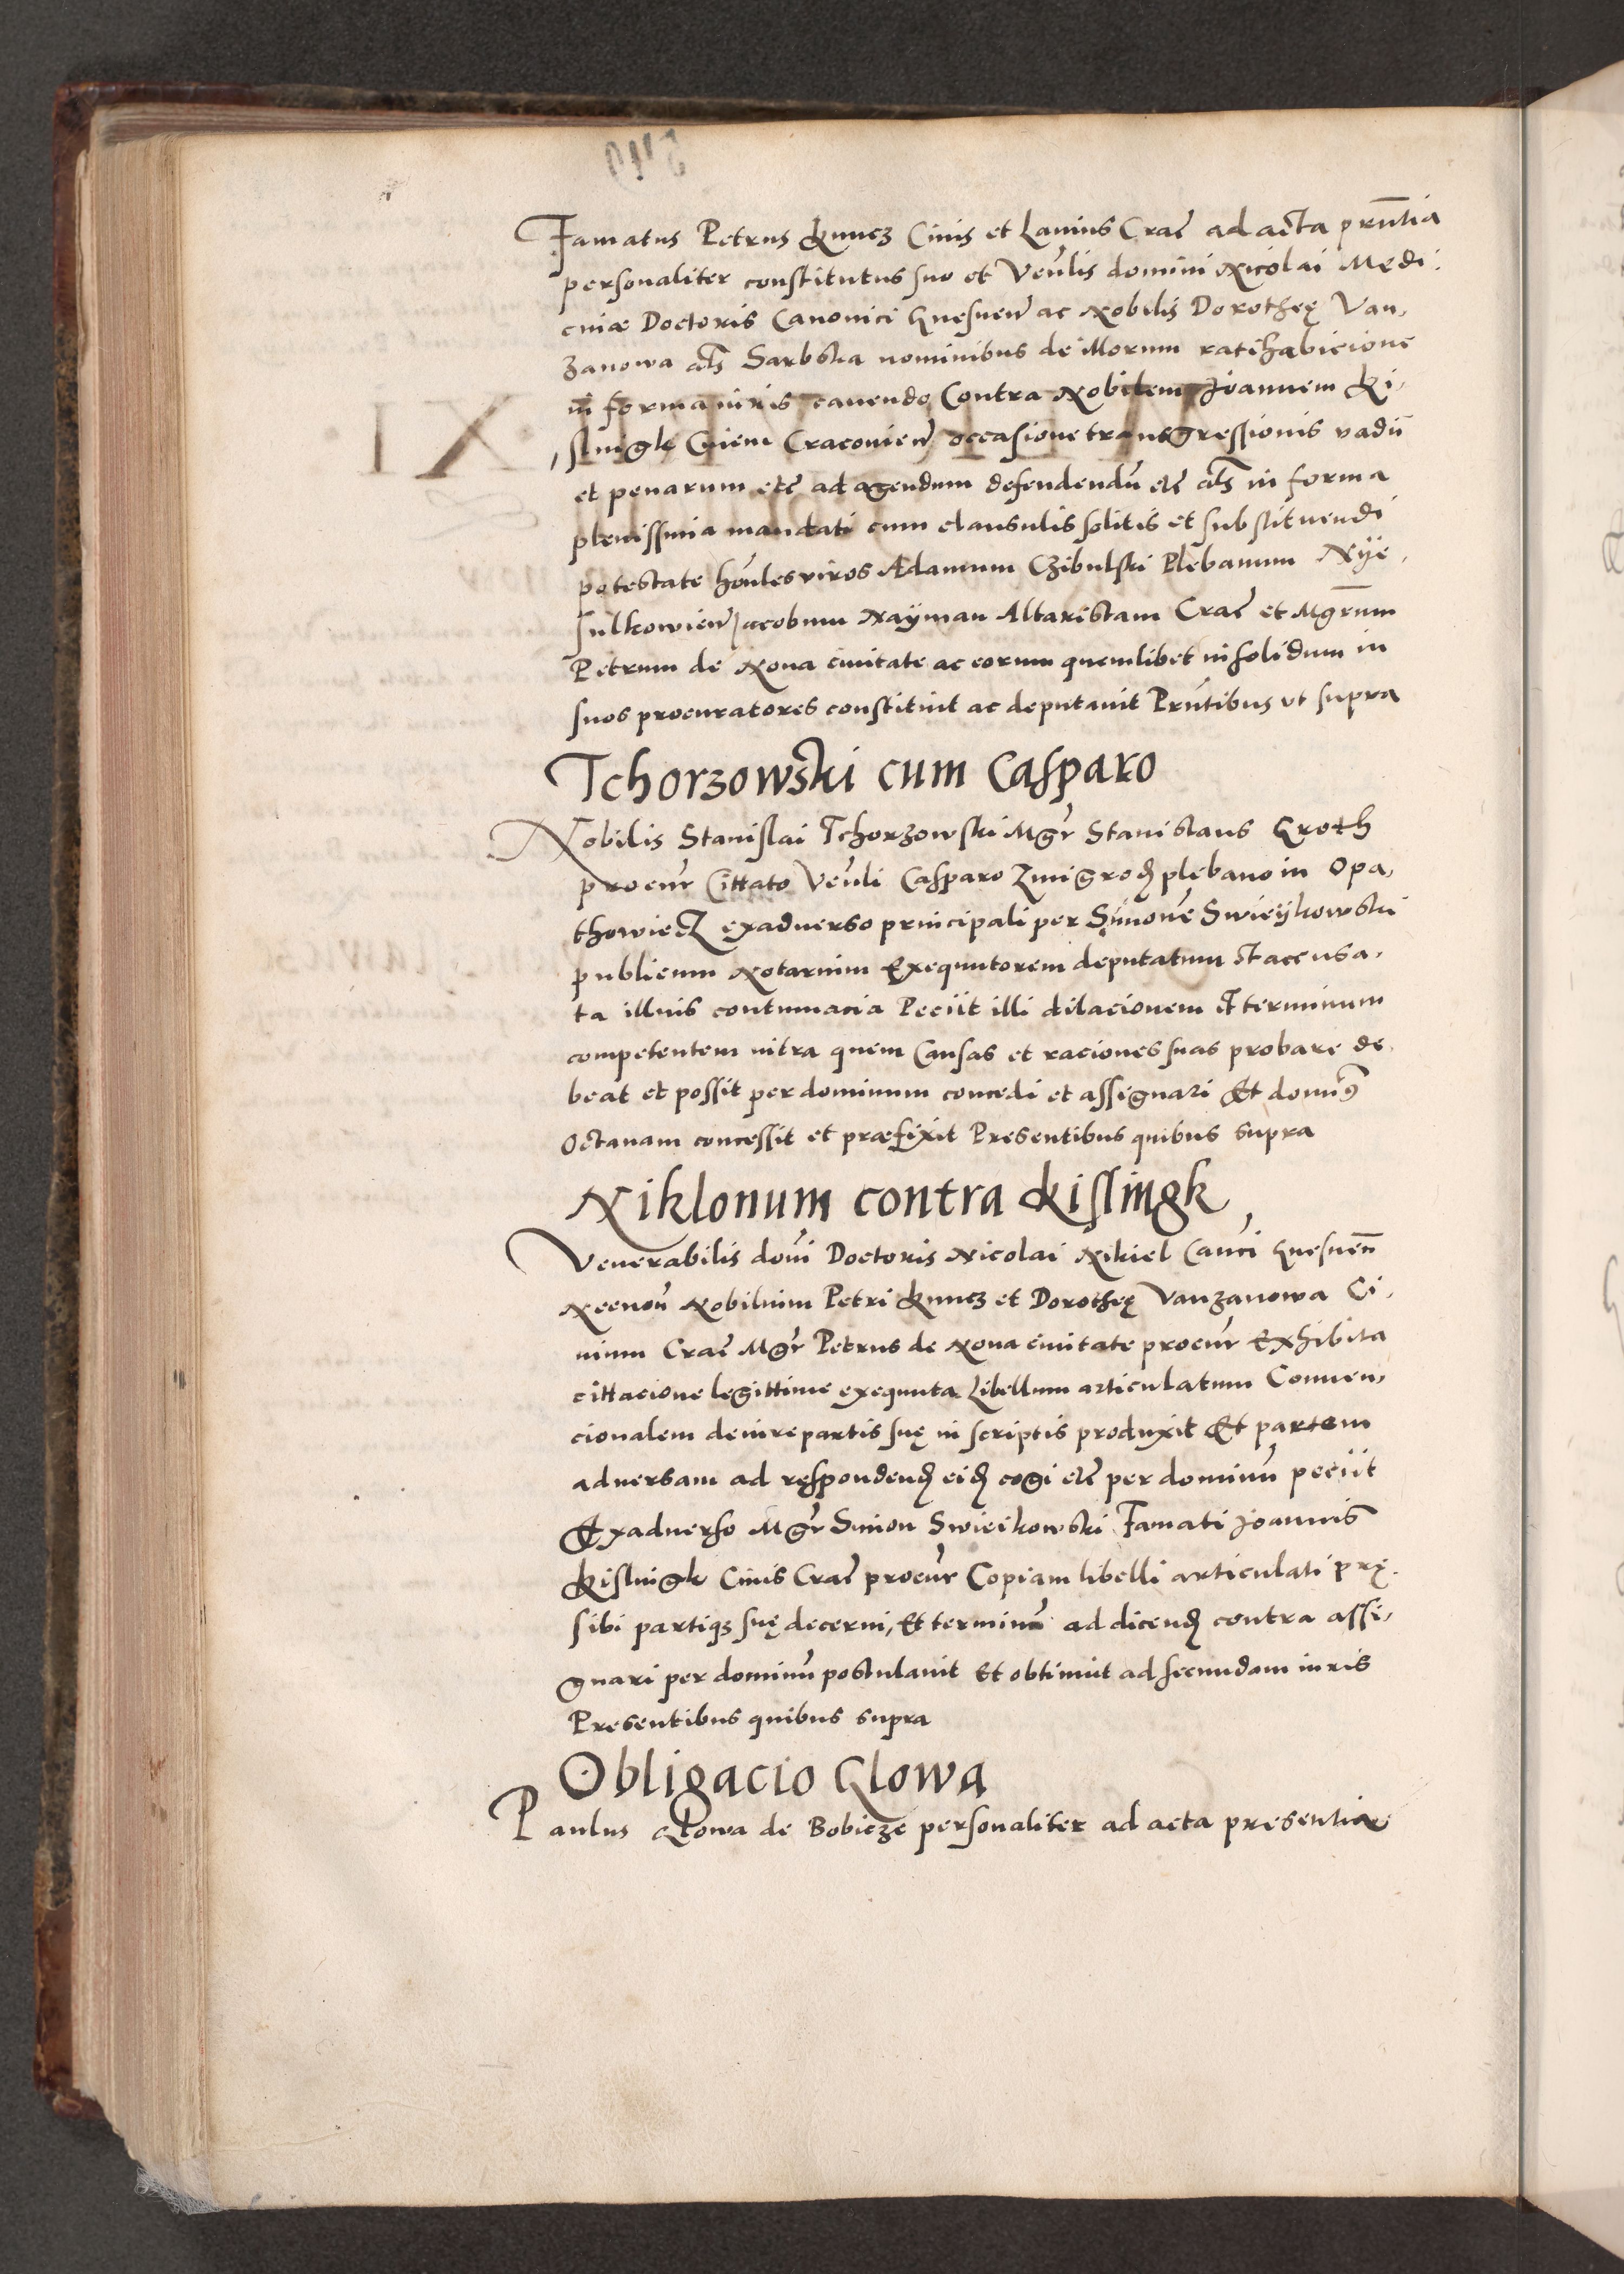 Famatus Petrus Kuncz Ciuis et Lanius Crac̄ ad acta pr̄ntia
personaliter constitutus suo et Ven̄lis domini Nicolai Medi,
cinæ Doctoris Canonici Gnesnen̄ ac Nobilis Dorotheę Van,
zanowa al̄s Sarbska nominibus de illorum ratihabicione
in forma iuris cauendo Contra Nobilem Joannem Ki,
slingk Ciuem Cracouien̄ occasione transgressionis vadii
et penarum etc̄ ad agendum defendendū etc̄ al̄s in forma
plenissima mandati cum clausulis solitis et substituendi
potestate hon̄les viros Adamum Czibulski Plebanum Nye,
sulkowien̄ Jacobum Nayman Altaristam Crac̄ et Mgr̄um
Petrum de Noua ciuitate ac eorum quemlibet insolidum in
suos procuratores constituit ac deputauit Pr̄ntibus vt supra
Tchorzowski cum Casparo
Nobilis Stanislai Tchorzowski Mgr̄ Stanislaus Groth
procur̄ Cittato Ven̄li Casparo Zmigrod plebano in Opa,
thowiecz exaduerso principali per Simonē Swieykowski
publicum Notarium Exequutorem deputatum Et accusa,
ta illius contumacia Peciit illi dilacionem Et terminum
competentem intra quem Causas et raciones suas probare de,
beat et possit per dominum concedi et assignari Et domin9
Octauam concessit et præfixit Presentibus quibus supra
Niklonum contra Kislingk
Venerabilis dom̄i Doctoris Nicolai Nikiel Can̄ci Gnesnen̄
Necnon̄ Nobilium Petri Kuncz et Dorotheę Vanzanowa Ci,
uium Crac̄ Mgr̄ Petrus de Noua ciuitate procur̄ Exhibita
cittacione legittime exequuta Libellum articulatum Conuen,
cionalem de iure partis suę in scriptis produxit Et partem
aduersam ad respondend eid cogi etc̄ per dominū peciit
Exaduerso Mgr̄ Simon Swieikowski Famati Joannis
Kislingk Ciuis Crac̄ procur̄ Copiam libelli articulati prę,
sibi partiq3 suę decerni, Et terminū ad dicend contra assi,
gnari per dominū postulauit Et obtinuit ad secundam iuris
Presentibus quibus supra
Obligacio Glowa
Paulus Glowa de Bobicze personaliter ad acta presentia